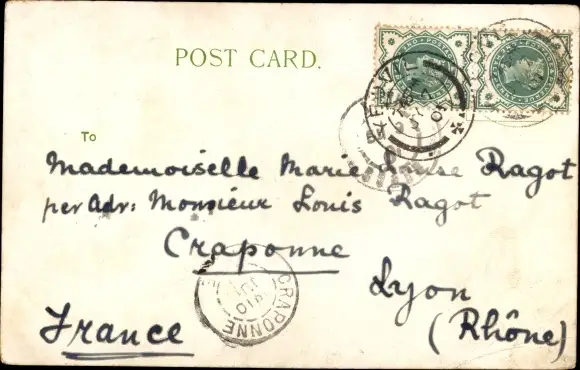 POST CARD.
To
Mademoiselle Marie Louise Ragot
per Adr: Monsieur Louis Ragot
Craponne
Lyon
(Rhône)
France
CRAPONNE